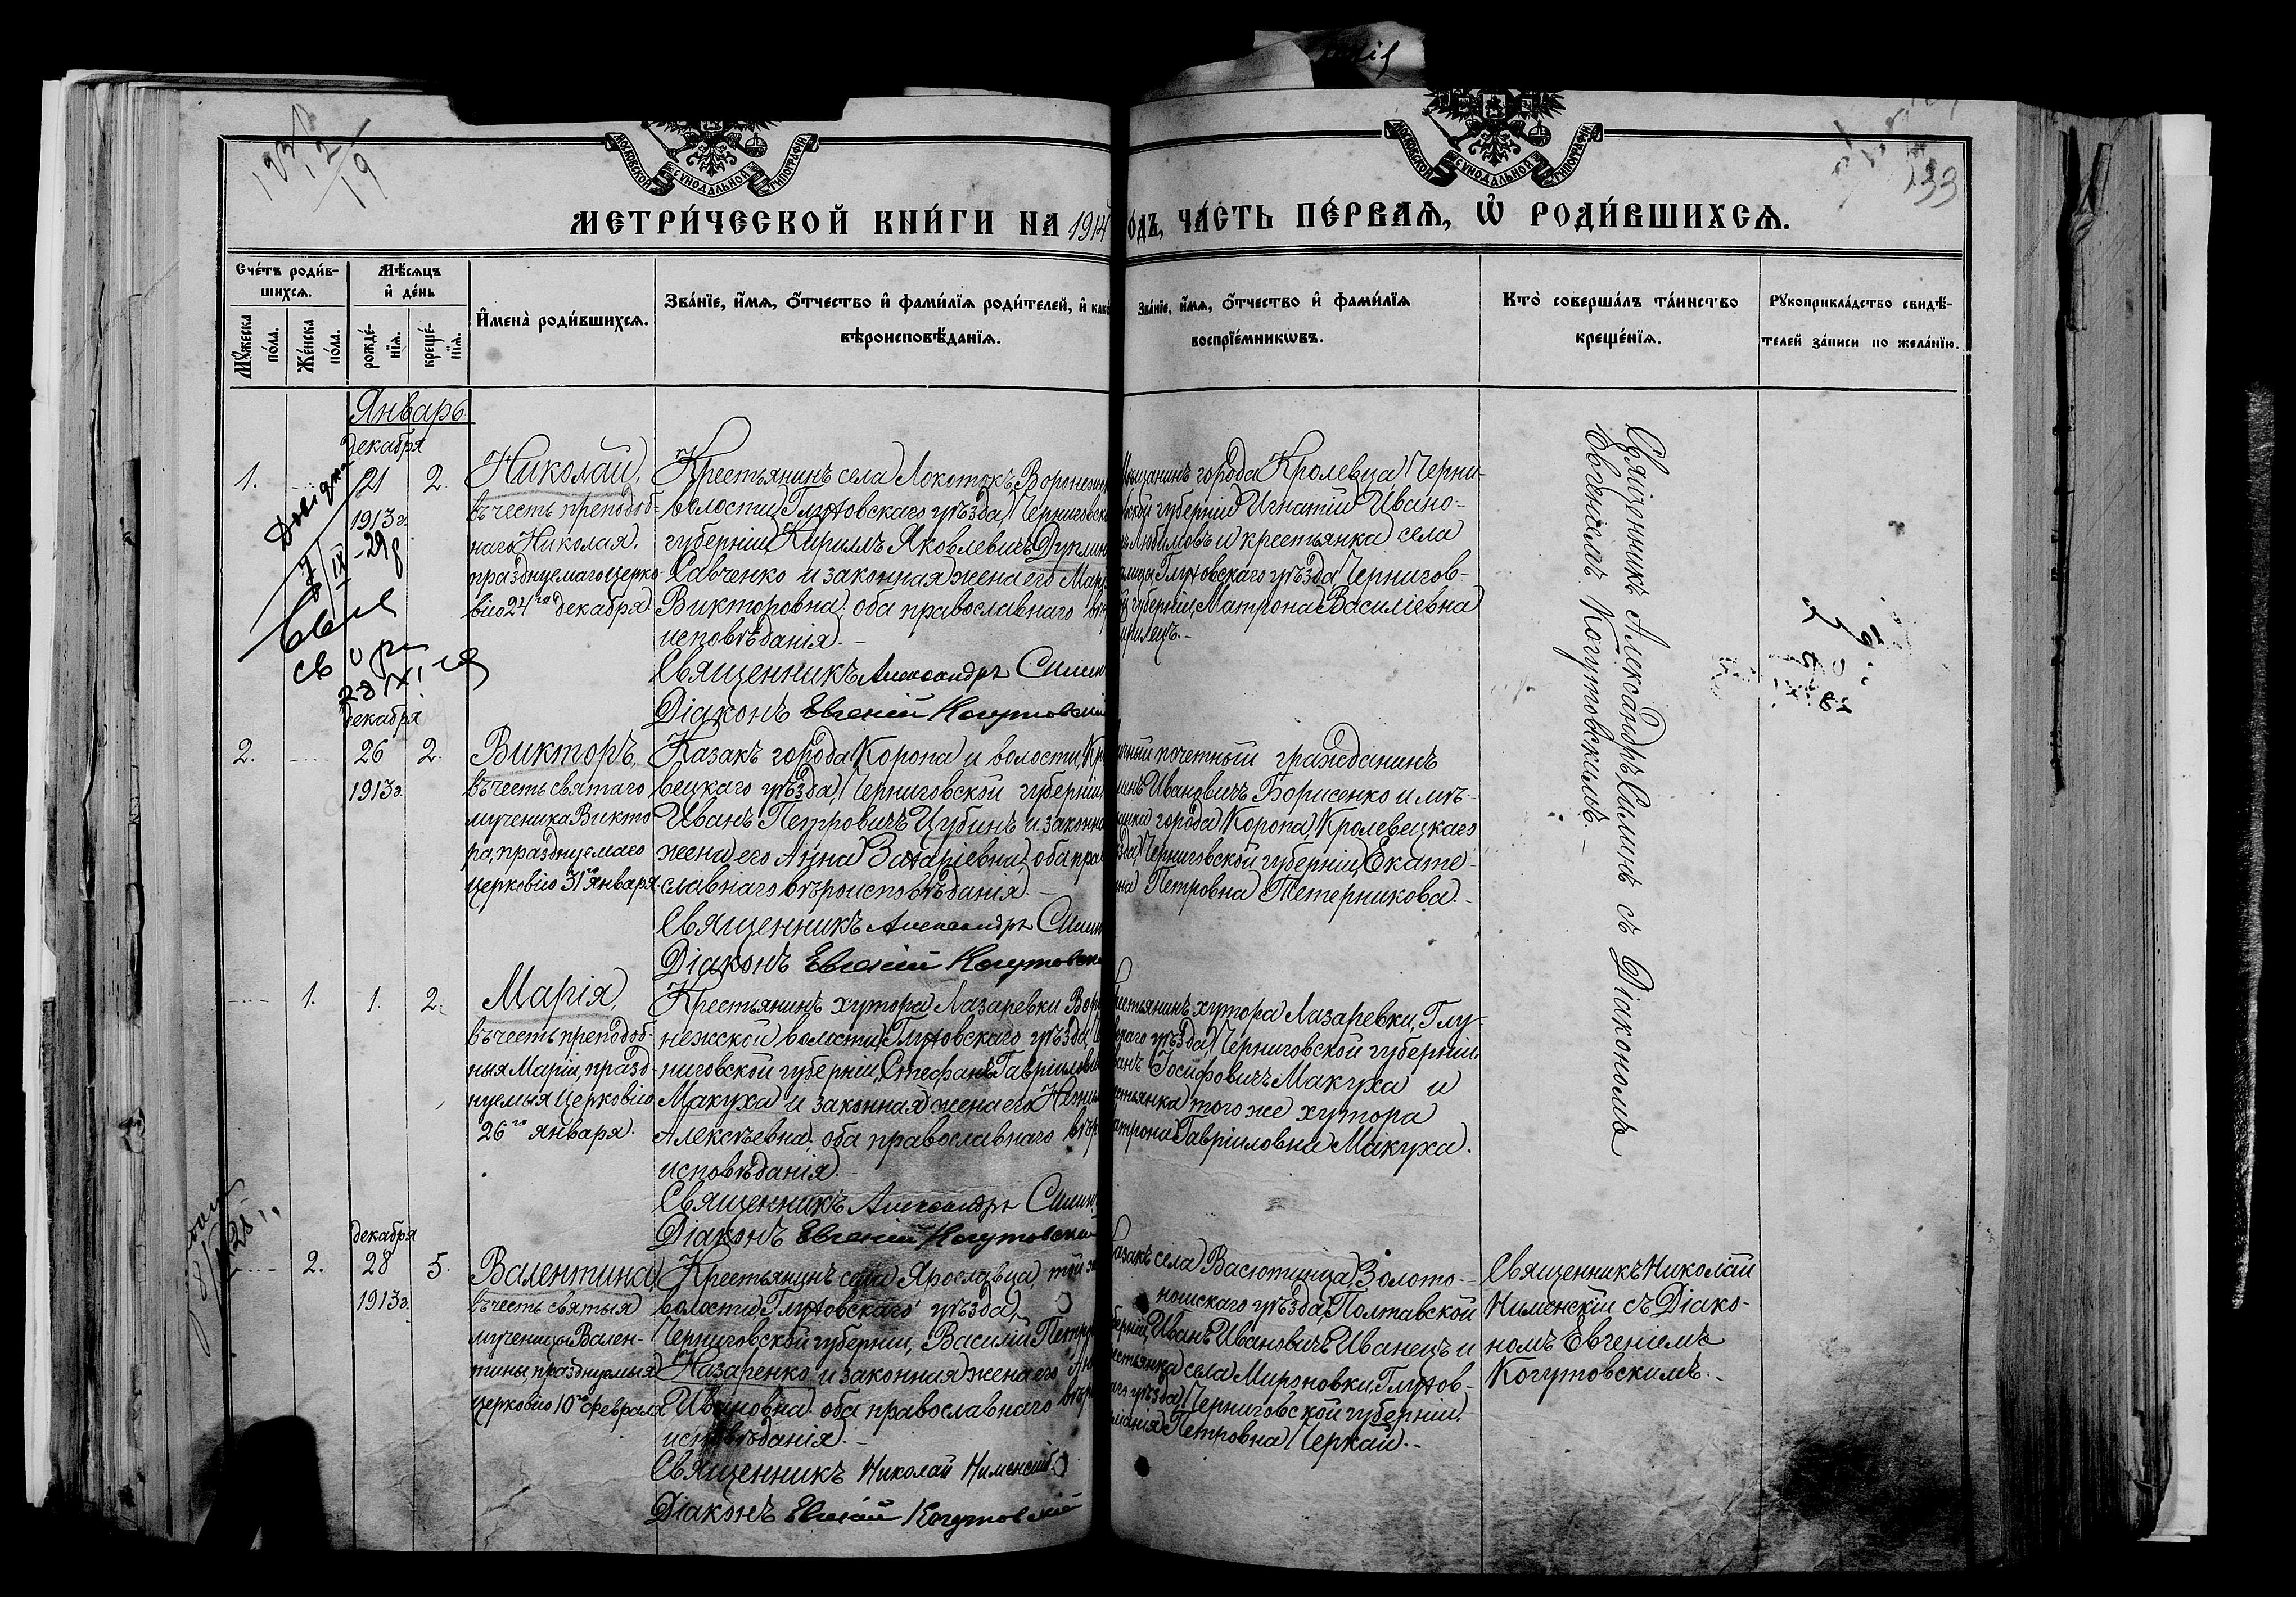 МОСКОВСКОЙ СѴНОДАЛЬНОЙ ТИПОГРАФІИ
МОСКОВСКОЙ СѴНОДАЛЬНОЙ ТИПОГРАФІИ
133
МЕТРИ́ЧЕСКОЙ КНИ́ГИ НА 1914
ОДЪ, ЧА́СТЬ ПЕ́РВАЯ, Ѽ РОДИ́ВШИХСЯ.
Сче́тъ роди́в-
шихся.
Мѣ́сяцъ
и де́нь
Мꙋ́жеска по́ла.
Же́нска по́ла.
рожде́-нія.
креще́-нія.
Имена̀ роди́вшихся.
Зва́ніе, и́мя, о́тчество и фами́лія роди́телей, и како
вѣроисповѣ́данія.
Зва́ніе, и́мя, о́тчество и фами́лія
воспріе́мникѡвъ.
Кто̀ соверша́лъ та́инство
креще́нія.
Рꙋкоприкла́дство свидѣ́-
телей за́писи по жела́нію.
Январь
декабря
1.
21
1913 г.
2.
Николай,
въ честь преподоб-
наго Николая,
празднуемаго церко-
вію 24го декабря.
Крестьянинъ села Локотокъ, Воронежс
волости, Глуховскаго уѣзда, Черниговско
губерніи, Кириллъ Яковлевичъ
Савченко и законная жена его Мар
Викторовна, оба православнаго вѣр
исповѣданія.-
Священникъ Александръ Силин
Діаконъ Евгеній Когутовскій
ѣщанинъ города Кролевца, Черни-
ской губерніи Игнатій Ивано-
ъ Любимовъ и крестьянка села
Глуховскаго уѣзда, Чернигов-
губерніи, Матрона Василіевна
декабря
2.
26
1913 г.
2.
Викторъ,
въ честь святаго
мученика Викто-
ра, празднуемаго
церковію 31го января.
Казакъ города Коропа и волости, Кро
вецкаго уѣзда, Черниговской губерніи,
Иванъ Петровичъ Цубинъ и законна
жена его Анна Захаріевна, оба пра
славнаго вѣроисповѣданія.-
Священникъ Александръ Силин
Діаконъ Евгеній Когутовскі
почетный гражданинъ
Ивановичъ Борисенко и мѣ-
анка города Коропа, Кролевецкаго
зда, Черниговской губерніи, Екате-
на Петровна Тетерникова.-
Священникъ Александръ Силинъ съ Діакономъ
Евгеніемъ Когутовскимъ.-
1.
1.
2.
Марія,
въ честь преподоб-
ныя Маріи, празд-
нуемыя церковію
26го января.
Крестьянинъ хутора Лазаревки, Воро
нежской волости, Глуховскаго уѣзда, Че
ниговской губерніи, Стефанъ Гавріилови
Макуха и законная жена его
Алексѣевна, оба православнаго вѣр
исповѣданія.-
Священникъ Александръ Силин
Діаконъ Евгеній Когутовскій
естьянинъ хутора Лазаревки, Глу-
скаго уѣзда, Черниговской губерніи,
анъ Іосифовичъ Макуха и
естьянка того же хутора
атрона Гавріиловна Макуха.
декабря
2.
28
1913 г.
5.
Валентина,
въ честь святыя
мученицы Вален-
тины, празднуемыя
церковію 10го февраля
Крестьянинъ села Ярославца, той ж
волости, Глуховскаго уѣзда,
Черниговской губерніи, Василій Петро
Назаренко и законная жена его
Ивановна, оба православнаго вѣр
исповѣданія.-
Священникъ Николай Нименскій
Діаконъ Евгеній Когутовскій
азакъ села Васютинца, Золото-
ношскаго уѣзда, Полтавской
берніи, Иванъ Ивановичъ Иванецъ и
естьянка села Мироновки, Глухов-
аго уѣзда, Черниговской губерніи,
Петровна Черкай.-
Священникъ Николай
Нименскій съ Діако-
номъ Евгеніемъ
Когутовскимъ.-